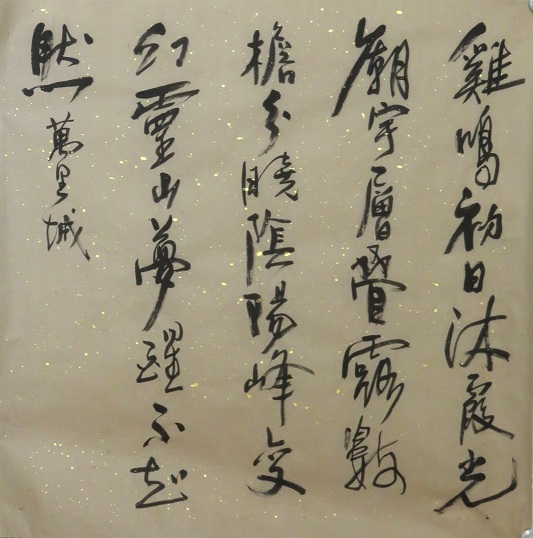 雞鳴初日沐霞光
廟宇層疊露數
檐分曉陰陽峰變
幻靈山夢醒不知
然
萬里城